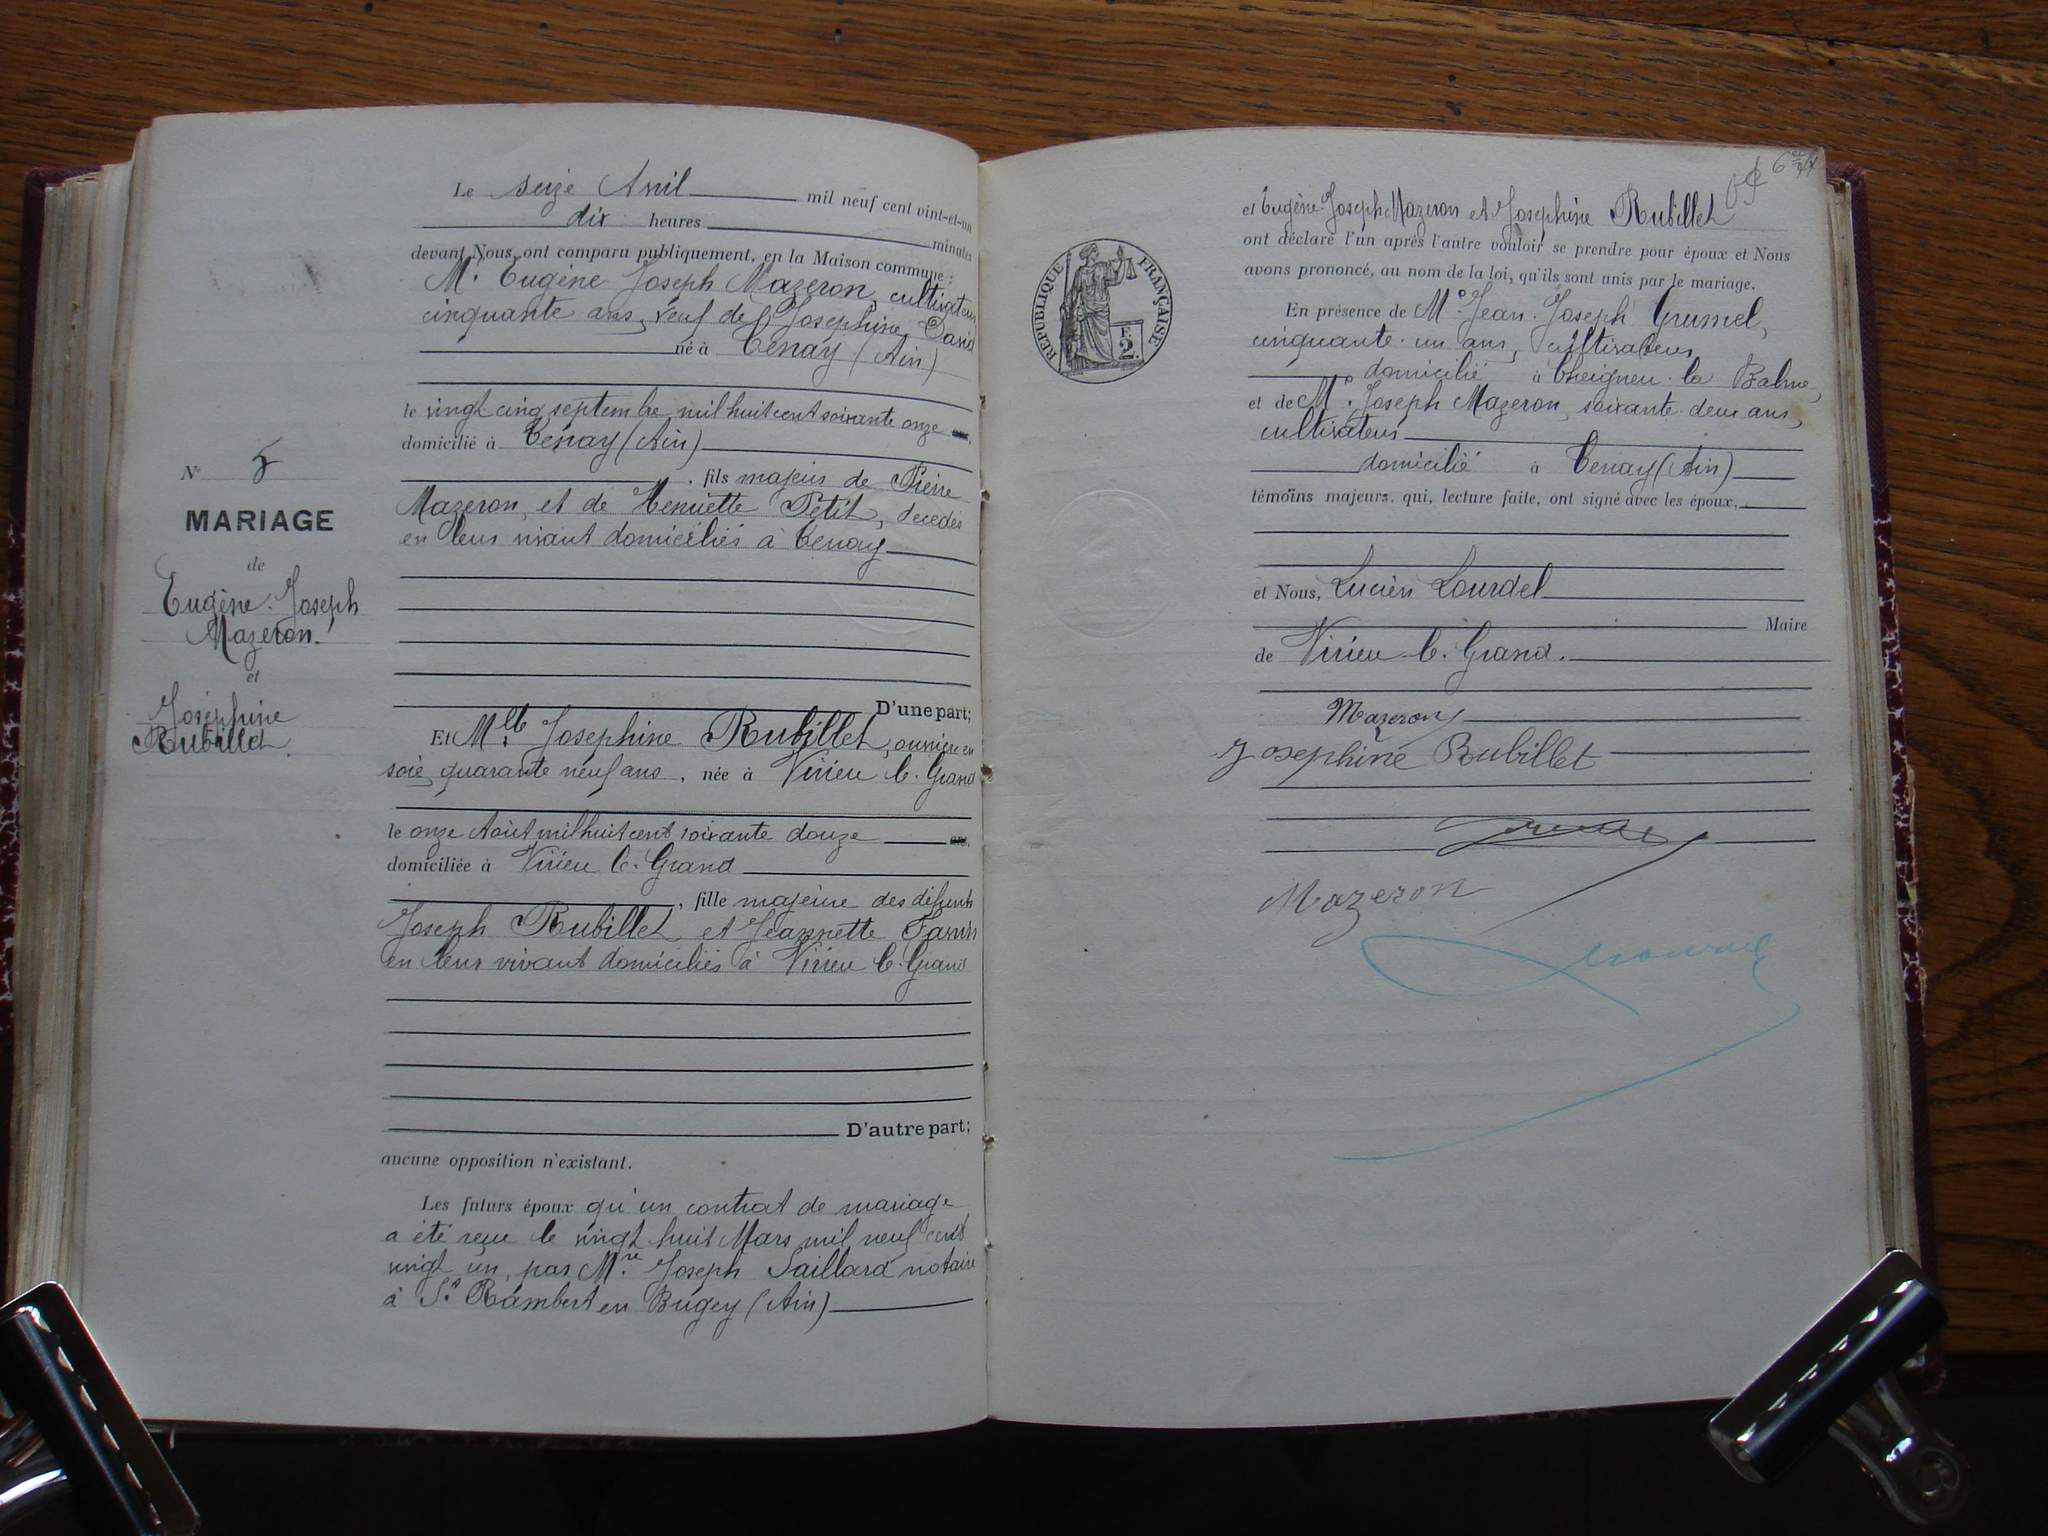 Le seize Avril mil neuf cent vint-et-un
dix heures minutes
devant Nous, ont comparu publiquement, en la Maison commune :
Mr. Eugène Joseph Mazeron, cultivateur
cinquante ans, veuf de Joséphine David
né à Tenay (Ain)
le vingt cinq septembre mil huit cent soixante onze
domicilié à Tenay (Ain)
, fils majeur de Pierre
Mazeron, et de Henriette Petit, décédés
en leur vivant domiciliés à Tenay
D'une part;
Et Mlle Joséphine Rubillet, ouvrière en
soie, quarante neuf ans, née à Virieu le Grand
le onze Août mil huit cent soixante douze
domiciliée à Virieu le Grand
, fille majeure des défunts
Joseph Rubillet et Jeannette
en leur vivant domiciliés à Virieu le Grand
D'autre part;
aucune opposition n'existant.
Les futurs époux qu'un contrat de mariage
a été reçu le vingt huit Mars mil neuf cent
vingt un, par Mre Joseph Saillard notaire
à St Rambert en Bugey (Ain)
No 5
MARIAGE
de
Eugène Joseph
Mazeron.
et
Joséphine
Rubillet.
et Eugène Joseph Mazeron et Joséphine Rubillet
ont déclaré l'un après l'autre vouloir se prendre pour époux et Nous
avons prononcé, au nom de la loi, qu'ils sont unis par le mariage.
RÉPUBLIQUE FRANÇAISE
E
2.
En présence de Mr. Jean Joseph Grumel,
cinquante-un ans, cultivateur
domicilié à Cheignieu-la Balme,
et de Mr. Joseph Mazeron, soixante-deux ans,
cultivateur
domicilié à Tenay (Ain)
témoins majeurs, qui, lecture faite, ont signé avec les époux,
et Nous, Lucien Lourdel
Maire
de Virieu-le-Grand.
Mazeron
Josephine Rubillet
Mazeron